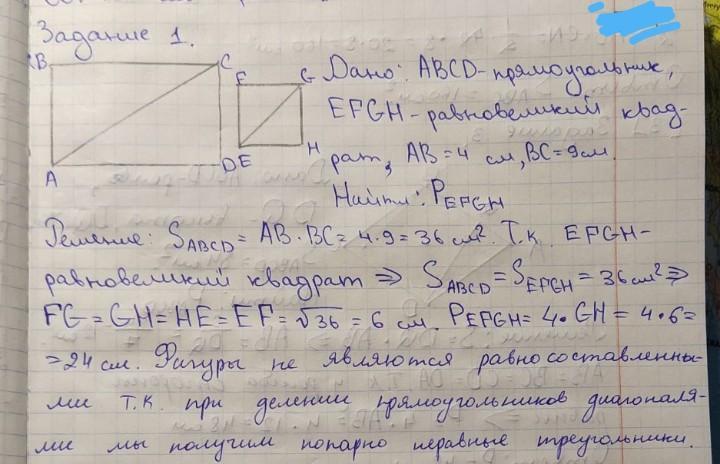 Задание 1.
B C F G
A D E H
Дано: ABCD-прямоугольник,
EFGH-равновеликий квад-
рат, AB=4 см, BC=9см.
Найти: P_EFGH
Решение: S_ABCD = AB · BC = 4·9 = 36 см². Т.к. EFGH-
равновеликий квадрат ⇒ S_ABCD = S_EFGH = 36 см² ⇒
FG = GH = HE = EF = √36 = 6 см. P_EFGH = 4·GH = 4·6=
=24 см. Фигуры не являются равносоставленны-
ми т.к. при делении прямоугольников диагоналя-
ми мы получим попарно неравные треугольники.